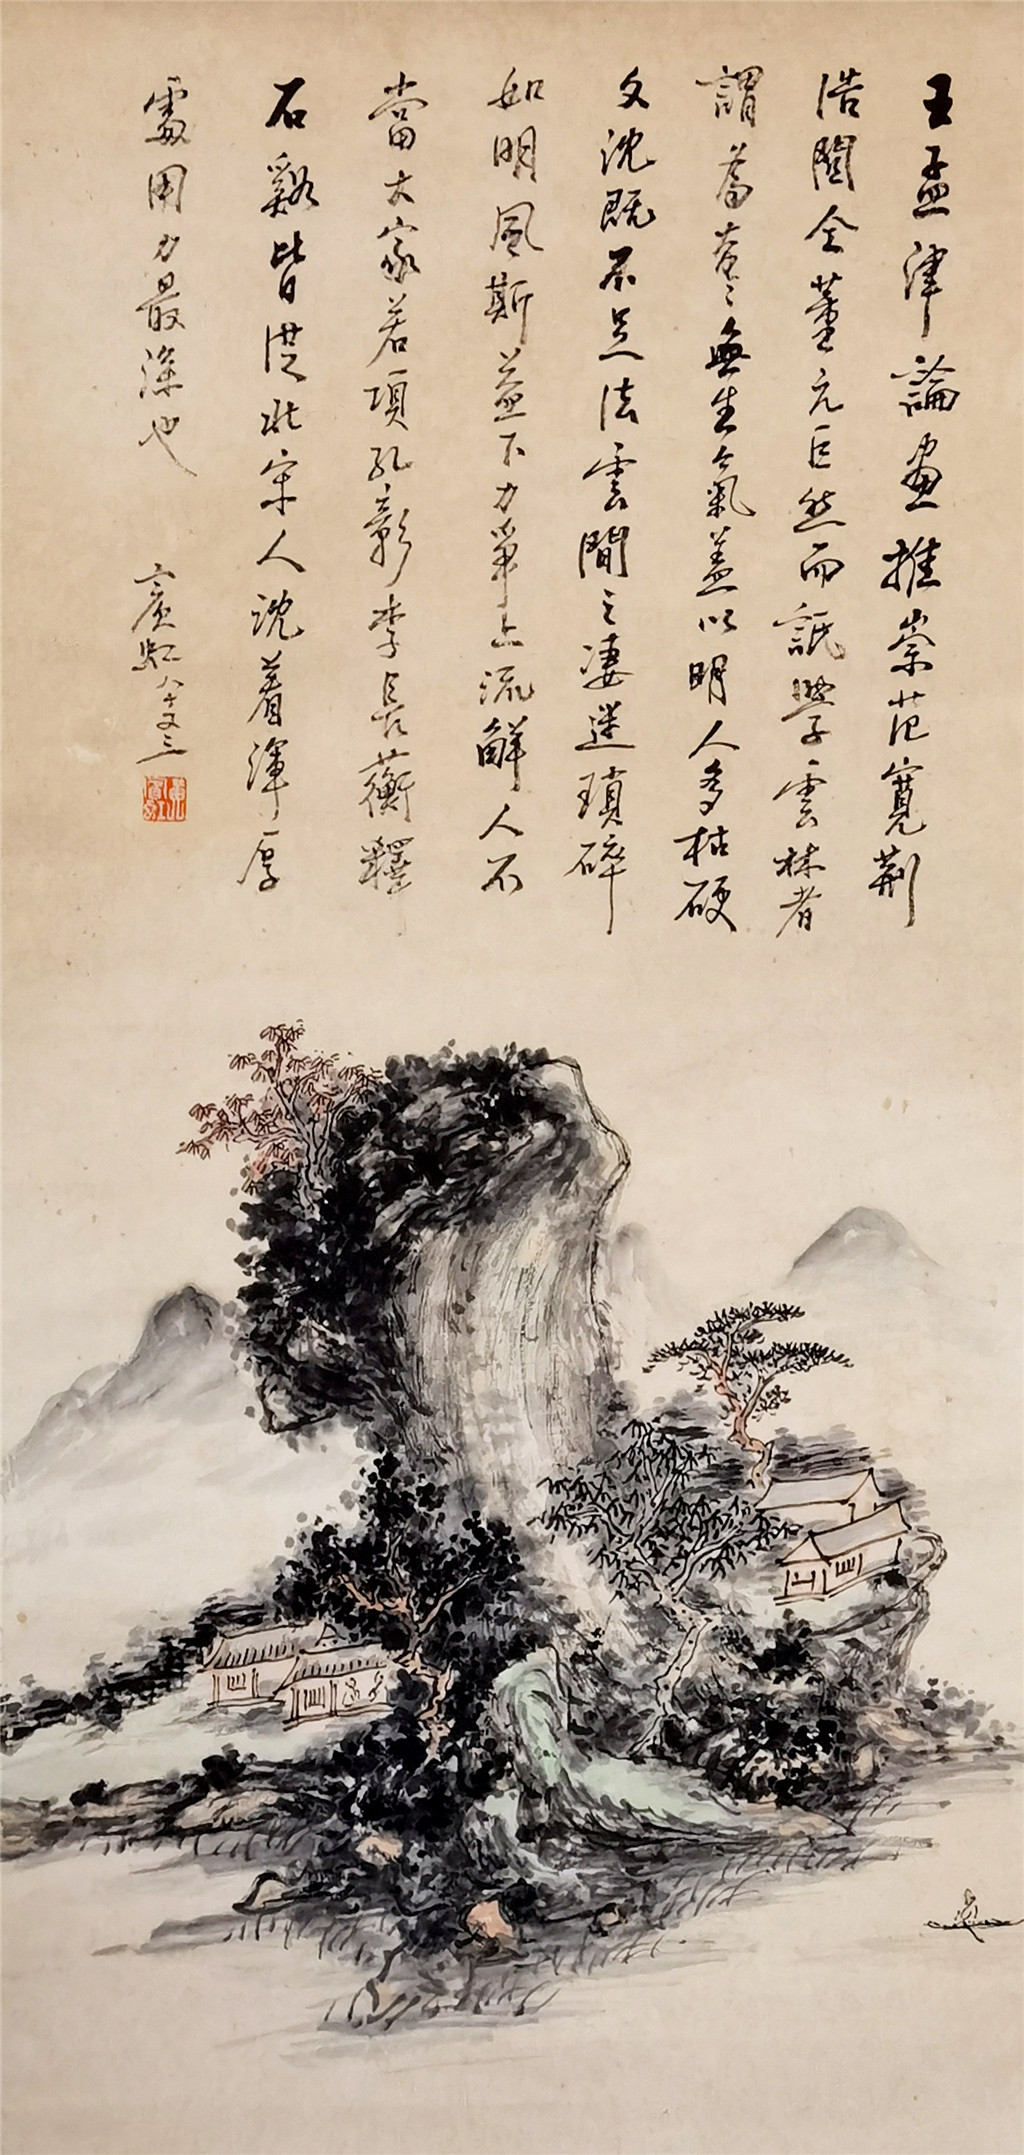 王孟津論畫推崇范寬荊
浩關仝董元巨然而詆學雲林者
謂奄奄無生氣蓋以明人多枯硬
文沈既不足法雲間之淒迷瑣碎
如明風斯益下力爭上流鮮人不
當大家若項孔彰李長蘅釋
石谿皆從北宋人沈着渾厚
處用力最深也
賓虹八十又三
黃賓虹